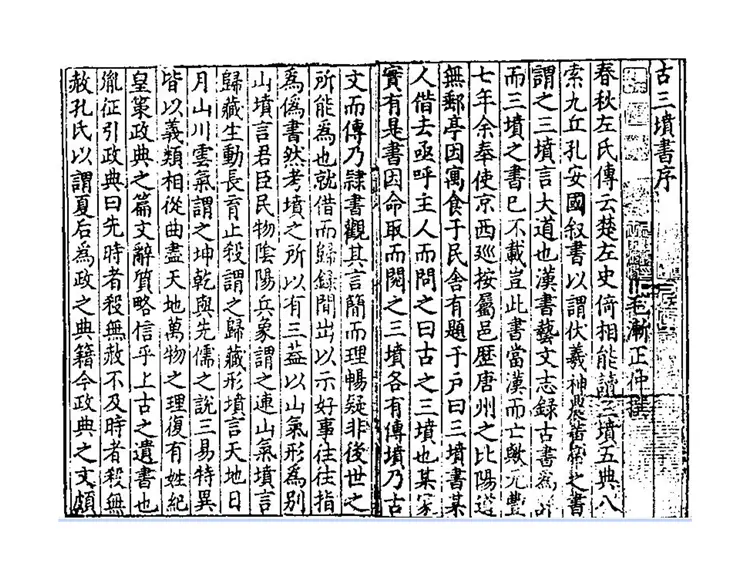 古三墳書序
毛漸正仲撰
春秋左氏傳云楚左史倚相能讀三墳五典八
索九丘孔安國叙書以謂伏羲神農黃帝之書
謂之三墳言大道也漢書藝文志録古書爲詳
而三墳之書已不載豈此書當漢而亡歟元豐
七年余奉使京西巡按屬邑歷唐州之比陽道
無郵亭因寓食于民舍有題于户曰三墳書某
人借去亟呼主人而問之曰古之三墳也某家
實有是書因命取而閱之三墳各有傳墳乃古
文而傳乃隸書觀其言簡而理暢疑非後世之
所能爲也就借而歸録間出以示好事往往指
爲僞書然考墳之所以有三蓋以山氣形爲別
山墳言君臣民物陰陽兵象謂之連山氣墳言
歸藏生動長育止殺謂之歸藏形墳言天地日
月山川雲氣謂之坤乾與先儒之說三易特異
皆以義類相從曲盡天地萬物之理復有姓紀
皇策政典之篇文辭質略信乎上古之遺書也
胤征引政典曰先時者殺無赦不及時者殺無
赦孔氏以謂夏后爲政之典籍今政典之文頗